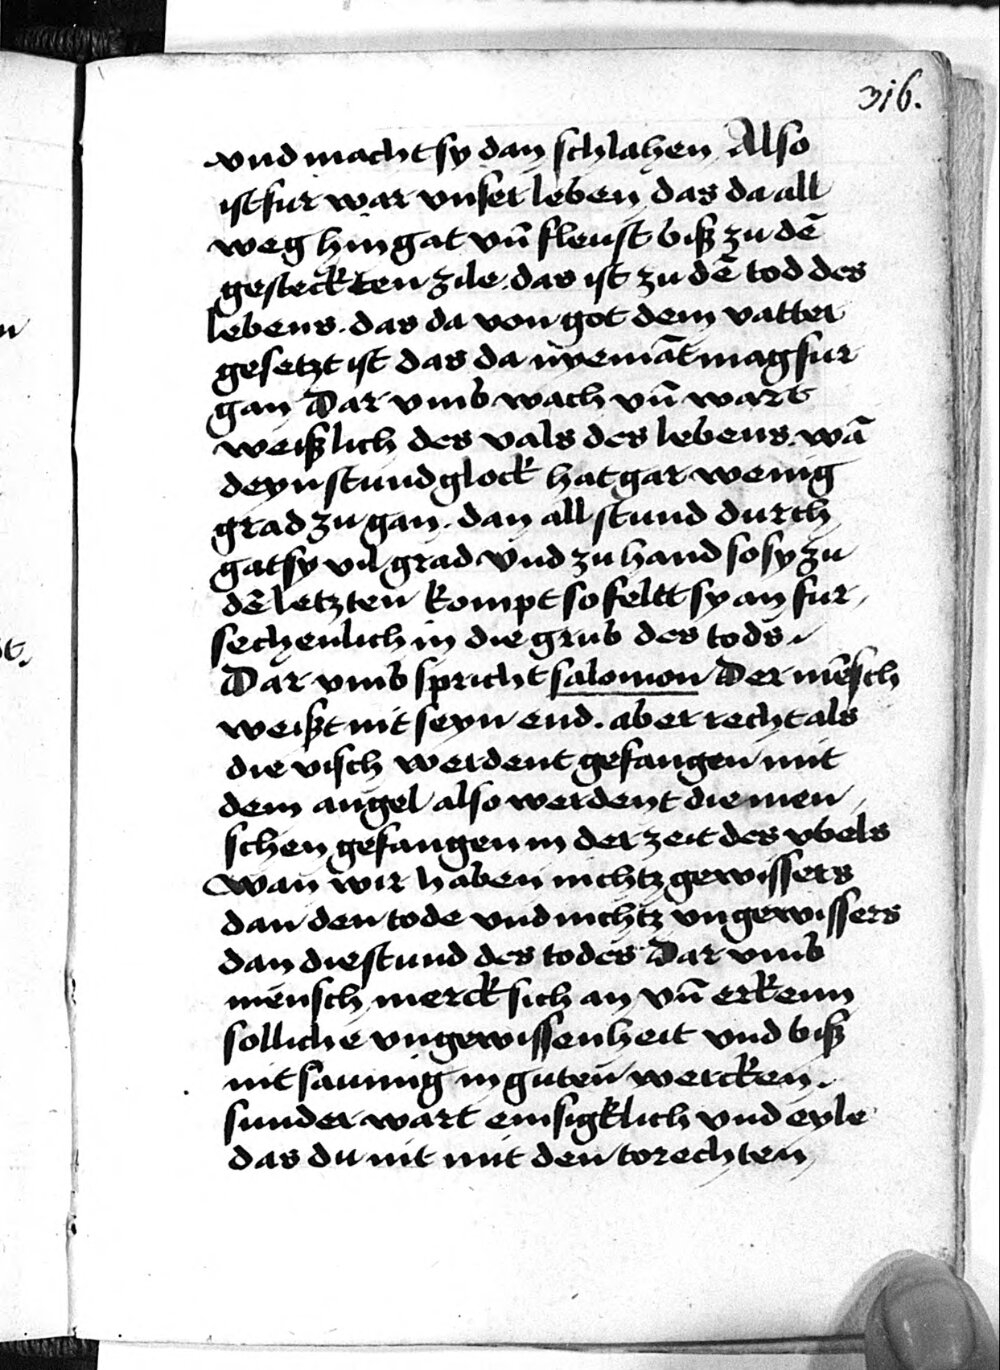 316.
vnd macht sy dan schlahen Also
ist fur war vnser leben das da all
weg hin gat vn̄ fleust biß zu dē
gesteckten zile. das ist zu dē tod des
lebens. das da von got dem vatter
gesetzt ist das da nyemāt mag fur
gan Dar vmb wach vn̄ wart
weißlich des vals des lebens. wā
deyn stund glock hat gar wenig
grad zu gan. dan all stund durch
gat sy vil grad vnd zu hand so sy zu
dē letzten kompt so feltt sy an fur
sechenlich in die grub des tods.
Dar vmb spricht salomon Der mēsch
weißt nit seyn end. aber recht als
die visch werdent gefangen mit
dem angel also werdent die men
schen gefangen in der zeit des vbels
wan wir haben nichtz gewissers
dan den tode vnd nichtz vngewissers
dan die stund des todes Dar vmb
mensch merck sich an vn̄ erkenn
solliche vngewissenheit vnd biß
nit saumig in guten wercken.
sunder wart emsigklich vnd eyle
das du nit mit den torechten